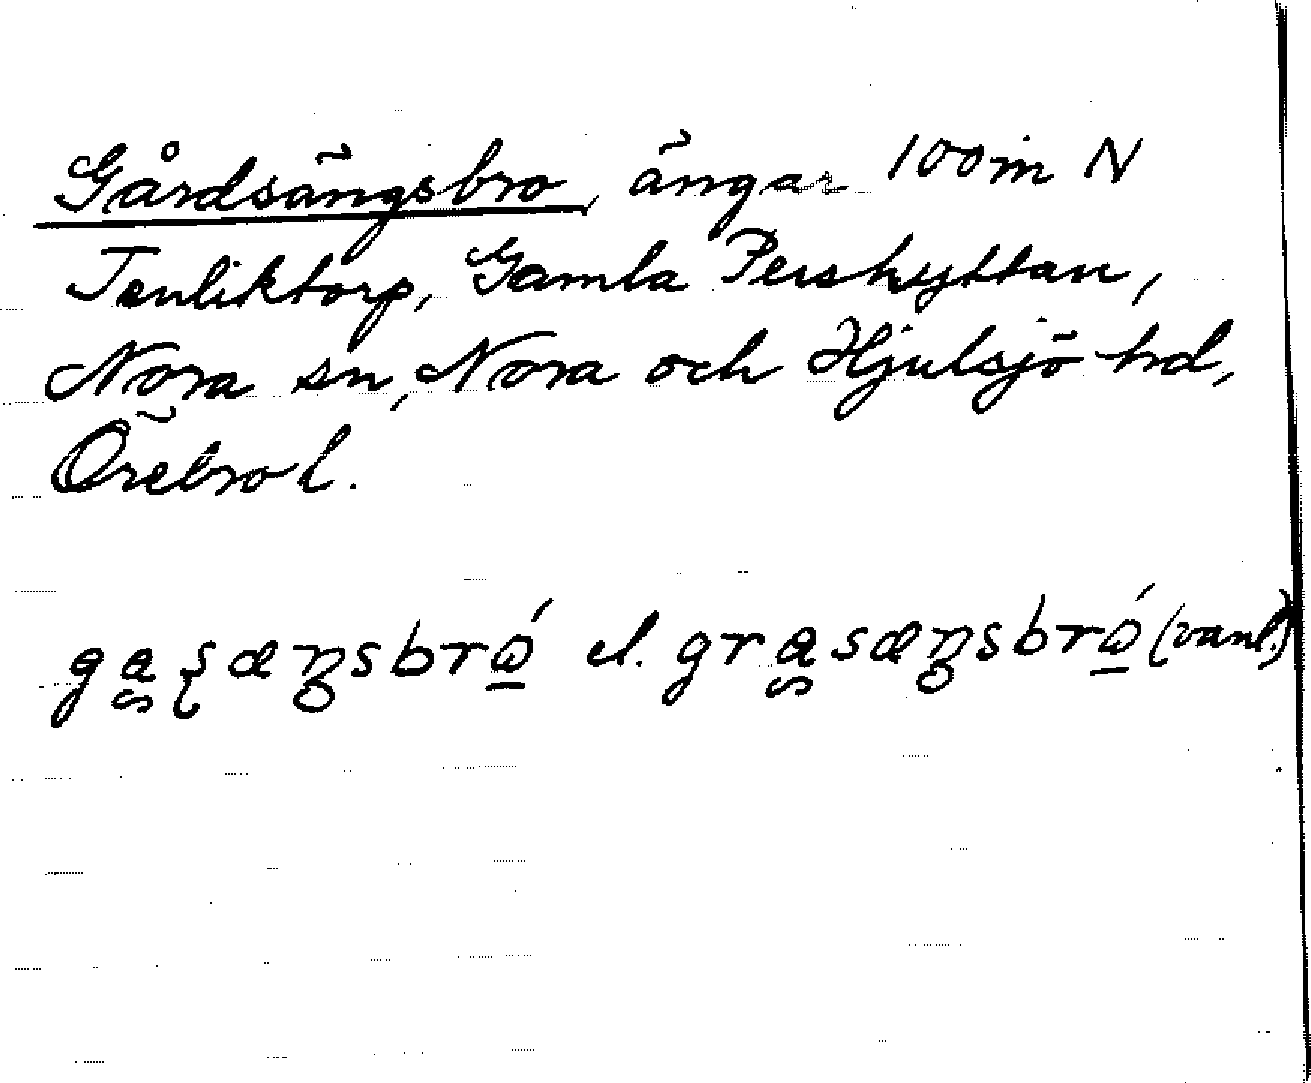 Gårdsängsbro, ängar 100 m N
Tenliktorp, Gamla Pershyttan,
Nora sn, Nora och Hjulsjö hd,
Örebro l.
el. (vanl.)